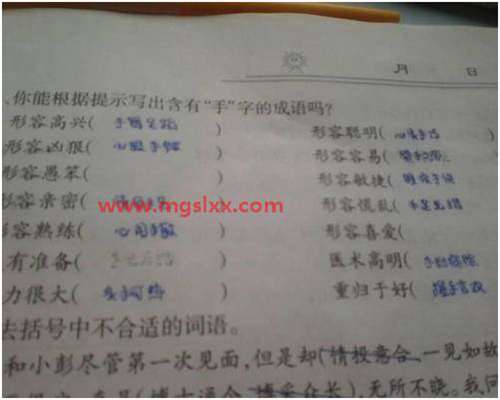 月 日
、你能根据提示写出含有“手”字的成语吗?
形容高兴( ) 形容聪明( 心灵手巧 )
形容凶狠( 心狠手辣 ) 形容容易(
形容愚笨( ) 形容敏捷( 眼疾手快
形容亲密( ) 形容慌乱( 手足无措
容熟练( 心闲手敏 ) 形容喜爱(
www.mgslxx.com
有准备( ) 医术高明( 手到病除
力很大( 炙手可热 ) 重归于好( 握手言欢
去括号中不合适的词语。
和小彭尽管第一次见面,但是却(情投意合、一见如故
(博古通今 博采众长),无所不晓。我问